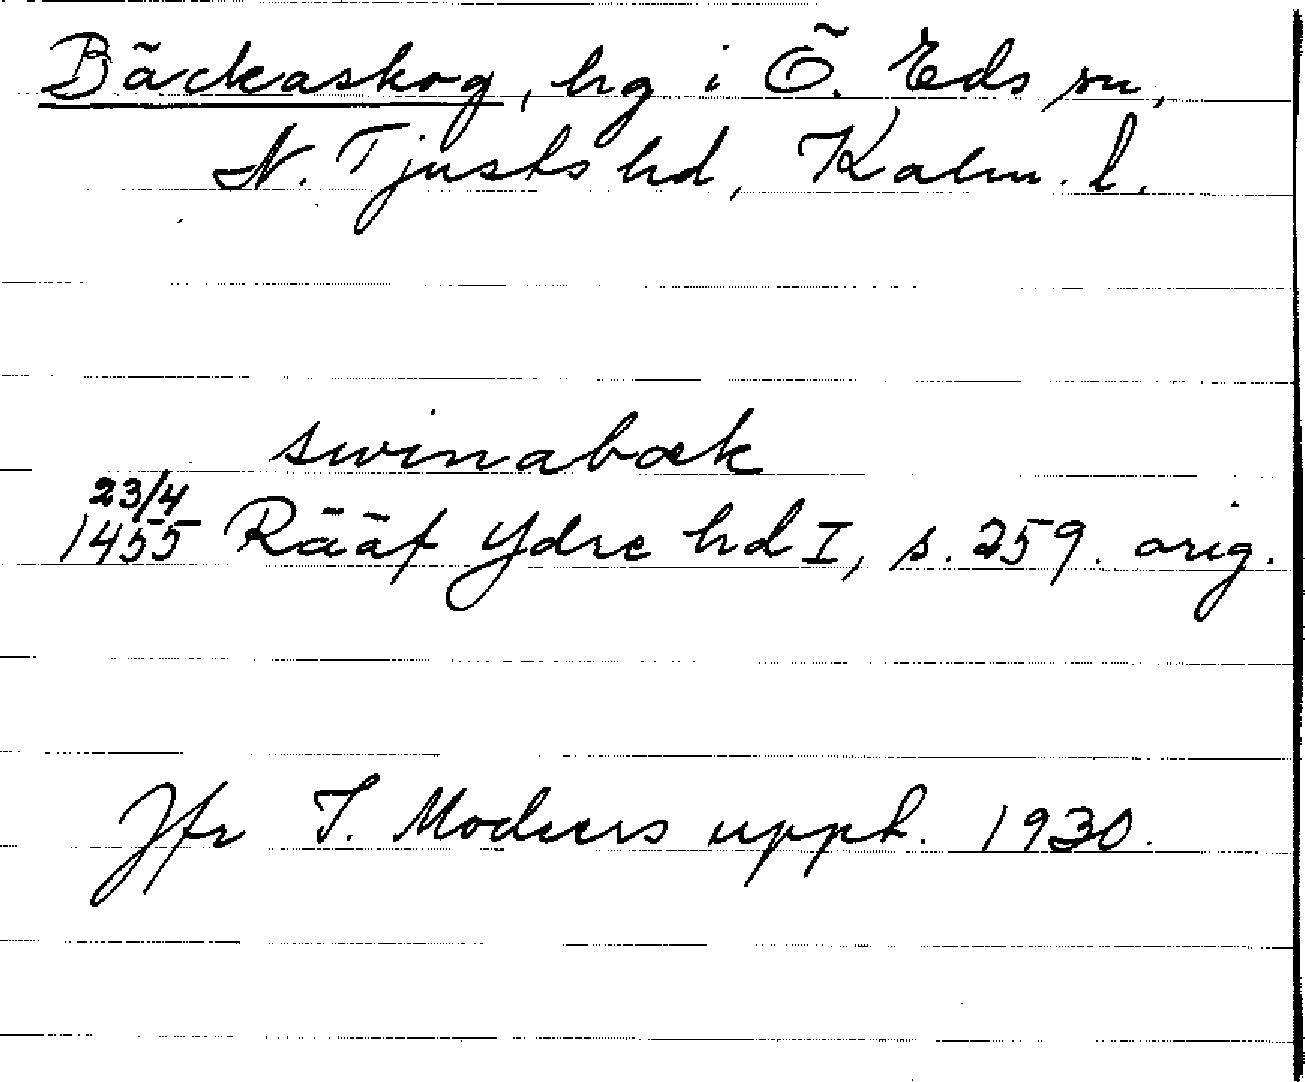 Bäckaskog, hg i Ö. Eds sn,
N. Tjusts hd, Kalm. l.
swinabæk
23/4
1455 Rääf Ydre hd I, s. 259. orig.
Jfr I. Modéers uppt. 1930.